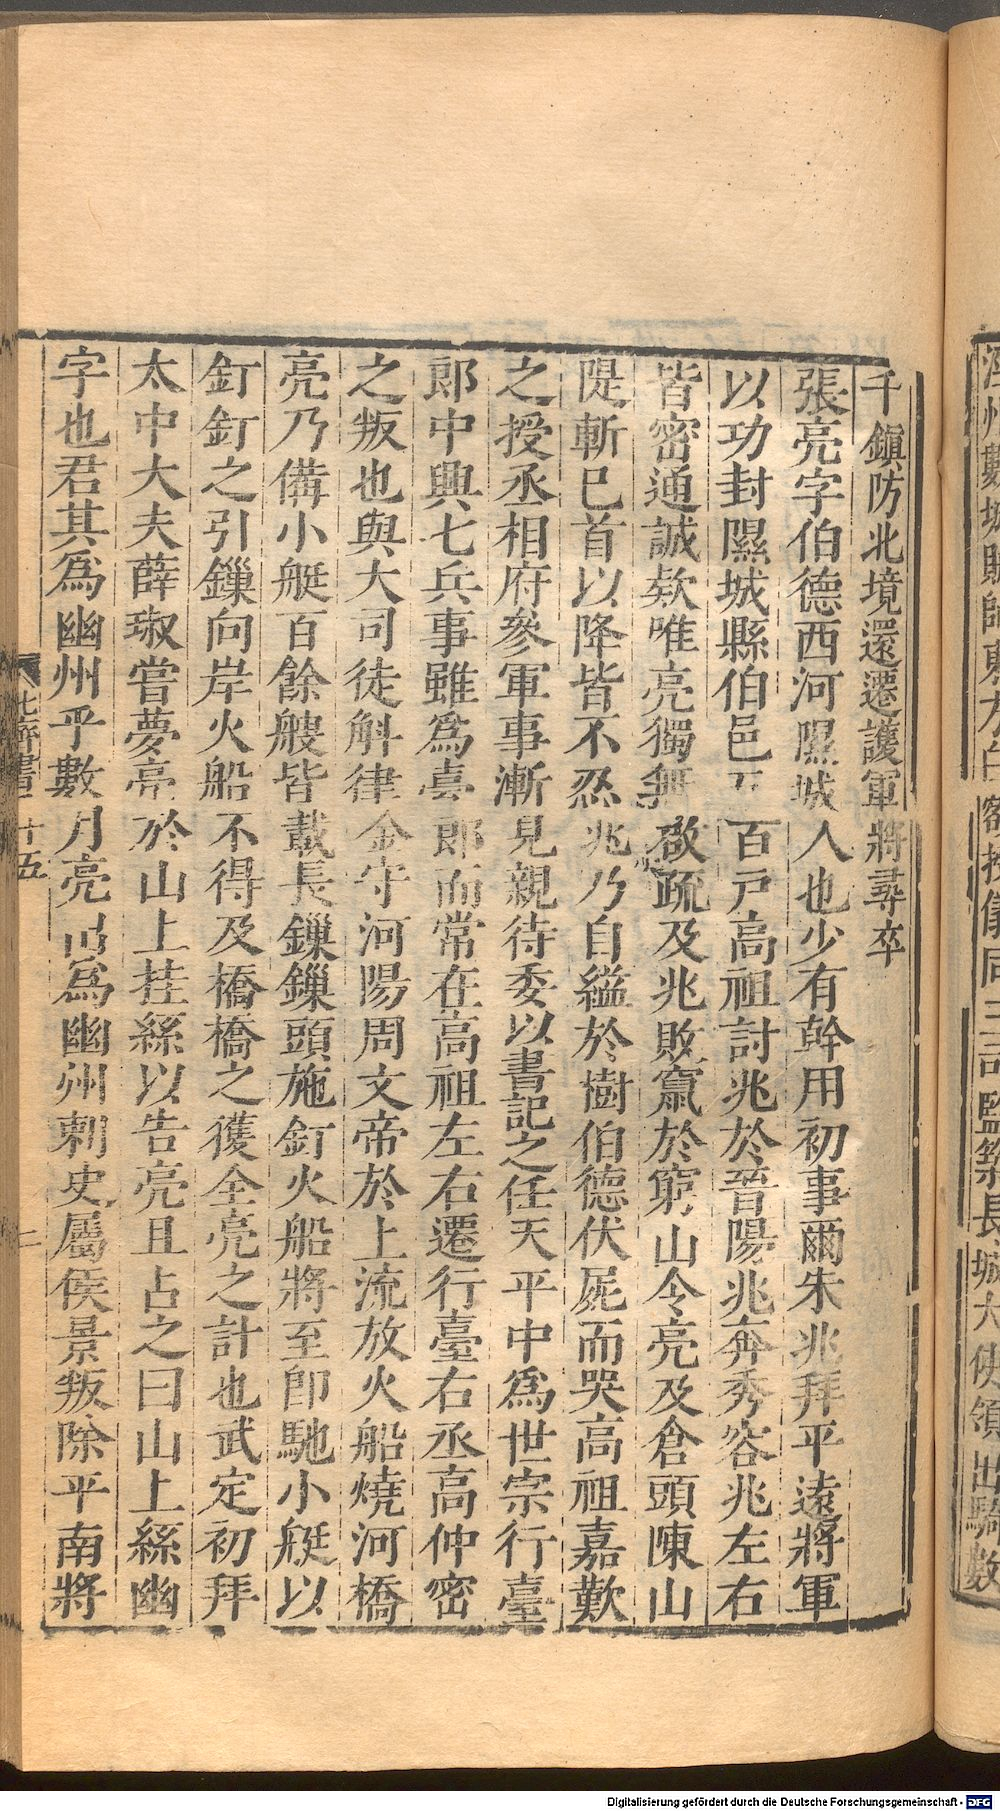 千鎮防北境還遷護軍將尋卒
張亮字伯德西河隰城人也少有幹用初事爾朱兆拜平遠將軍
以功封隰城縣伯邑五百戸高祖討兆於晉陽兆奔秀容兆左右
皆密通誠欵唯亮獨無啟疏及兆敗竄於窮山令亮及倉頭陳山
隄斬巳首以降皆不忍兆乃自縊於樹伯德伏屍而哭高祖嘉歎
之授丞相府參軍事漸見親待委以書記之任天平中為世宗行臺
郎中典七兵事雖為臺郎而常在高祖左右遷行臺右丞高仲密
之叛也與大司徒斛律金守河陽周文帝於上流放火船燒河橋
亮乃備小艇百餘艘皆載長鏁鏁頭施釘火船將至即馳小艇以
釘釘之引鏁向岸火船不得及橋橋之獲全亮之計也武定初拜
太中大夫薛琡嘗夢亮於山上挂絲以告亮且占之曰山上絲幽
字也君其為幽州乎數月亮出為幽州刺史屬侯景叛除平南將
北齊書 廿五
數城賊帥東方白 三司監築長城大使領出騎數
Digitalisierung gefördert durch die Deutsche Forschungsgemeinschaft - DFG